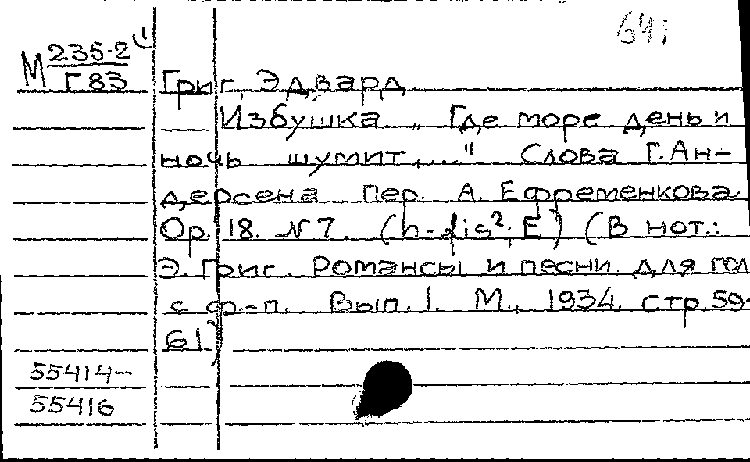 64;
М 235-2
Г 83
Григ, Эдвард.
Избушка „Где море день и
ночь шумит...." Слова Г. Ан-
дерсена пер. А. Ефременкова.
Ор. 18. № 7. (h-dis²; E) (В нот.:
Э. Григ. Романсы и песни для гол.
с ф-п. Вып. I. М., 1934. стр. 59-
61)
55414-
55416